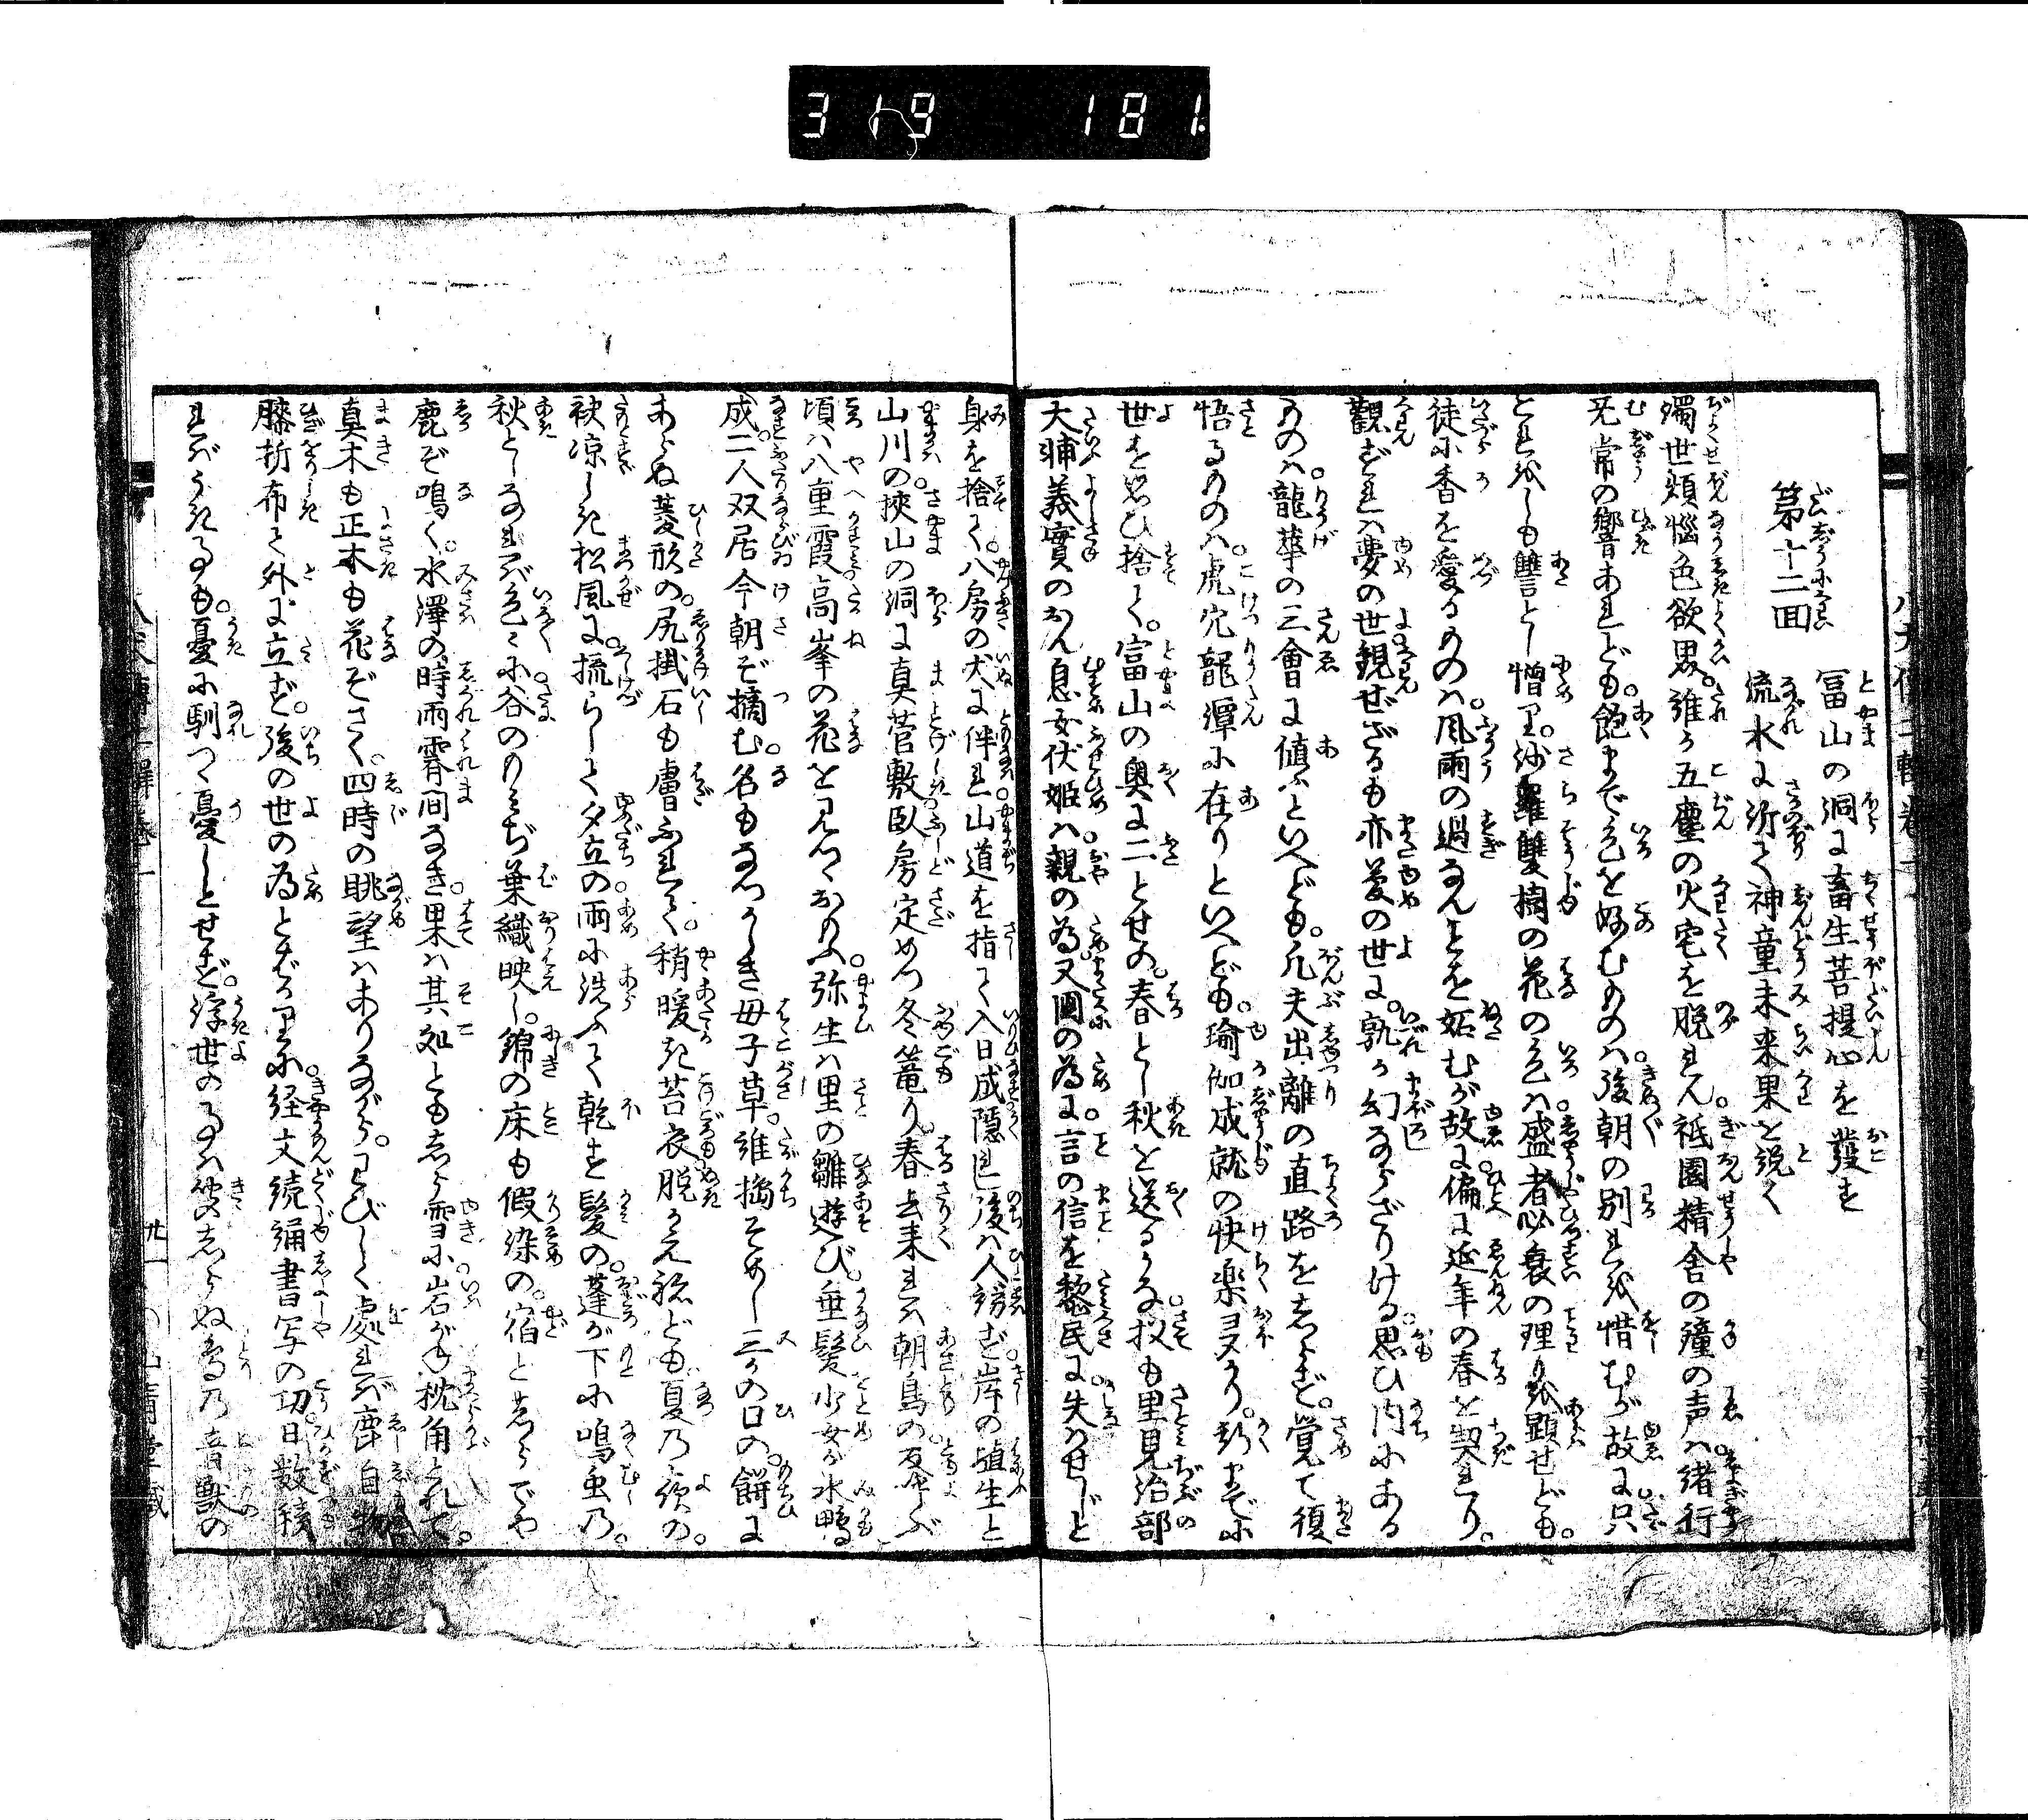 319 181
第十二回
冨山の洞に畜生菩提心を發す
流水に泝て神童未来果を説く
濁世煩悩色欲界。誰か五塵の火宅を脱れん。祗園精舎の鐘の声ハ諸行
無常の響あれども。飽まで色を好むものハ。後朝の別れを惜むが故に只
とれをしも讐とし憎り。沙羅雙樹の花の色ハ盛者必衰の理りを顕せども。
徒に香を愛るものハ。風雨の過なんとを妬むが故に偏に延年の春を契れり。
觀ずれハ夢の世觀せざるも亦夢の世に。孰か幻ならざりける。思ひ内にある
ものハ。龍華の三會に値ふといへども。凡夫出離の直路をしらず。覚て復
悟るものハ。虎穴龍潭に在りといへども。瑜伽成就の快楽ヨヌかり。彰までに
世を思ひ捨て。富山の奥に二とせの。春とし秋を送るかな扨も里見治部
大輔義實のおん息女伏姫ハ。親の為又國の為に。言の信を黎民に。失ハせじと
身を捨て。八房の犬に伴れ山道を指て入日成隠れし後ハ人訪ず岸の埴生と
山川の。狹山の洞に真菅敷臥房定めつ冬篭り。春去来れハ朝鳥の。友呼ぶ
頃ハ八重霞高峯の花を見つゝおもふ。弥生ハ里の雛遊び。垂髪少女が水鴨
成二人双居今朝ぞ摘む。名もなつかしき母子草。誰搗そめし三かの日の。餅に
あらぬ菱形の。尻掛石も膚ふれて。稍暖き苔衣脱かえねども夏の夜の。
袂凉しき松風に。梳らして夕立の雨に洗ふて乾す髪の。蓬が下に鳴虫の。
秋としなれバ色々に。谷のもみぢ葉織映し。錦の床も假染の。宿としらでや
鹿ぞ鳴く。水澤の時雨霽間なき。果ハ其処ともしら雪に。岩がね枕角とれて。
真木も正木も花ぞさく。四時の眺望ハありながら。わびしく處れバ鹿自物
膝折布て外に立ず。後の世の為とばかりに。経文続誦書写の功日数積
れバうき事も。憂に馴つゝ憂しとせず。浮世の事ハ聞しらぬ鳥の音獣の